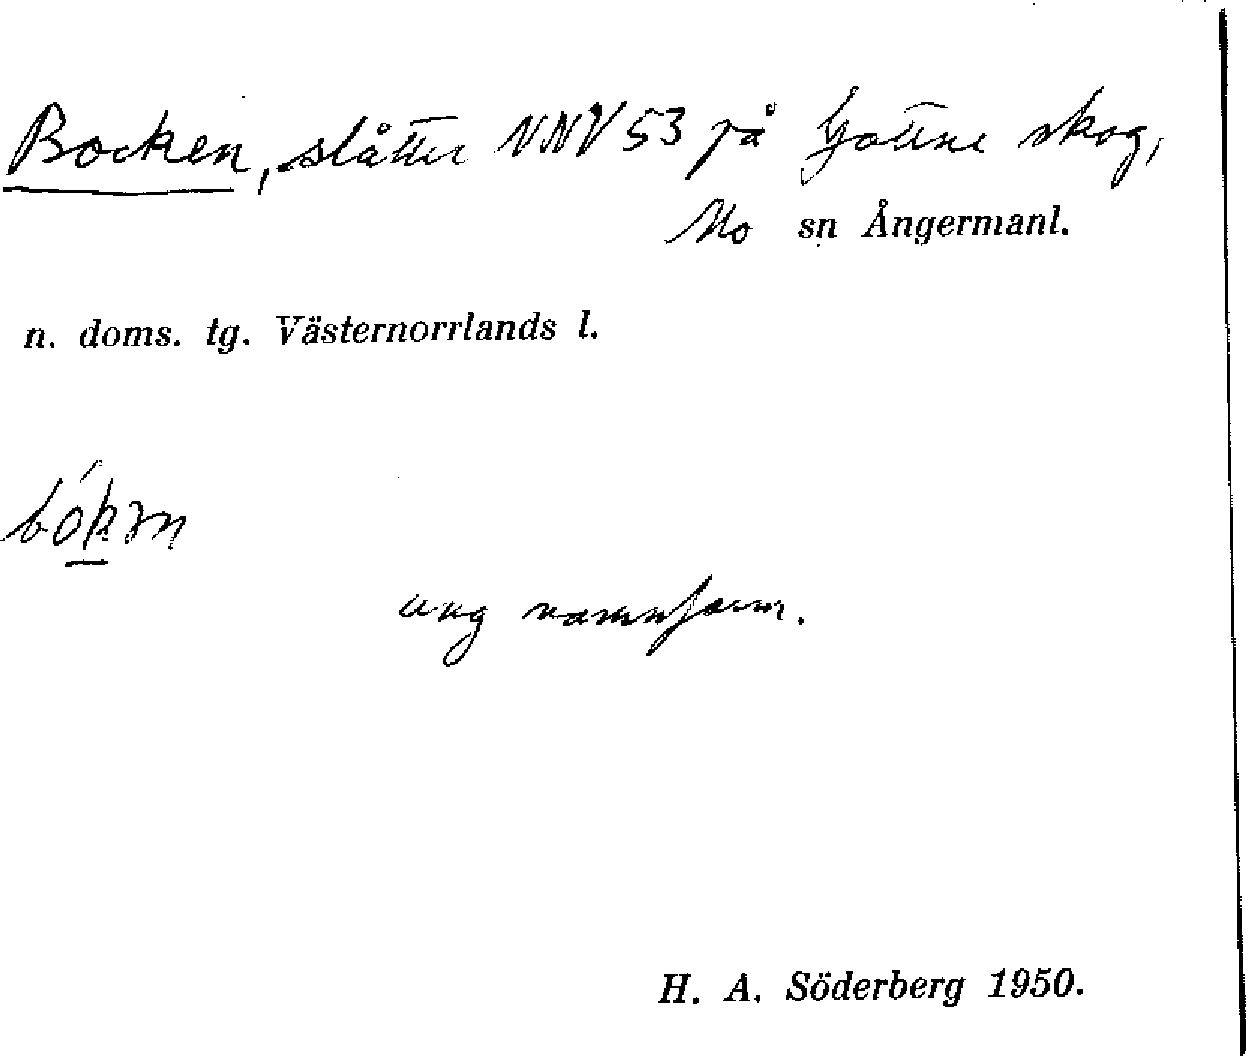 Bocken, slåtter NNV 53 på Gottne skog,
Mo sn Ångermanl.
n. doms. tg. Västernorrlands l.
ung namnform.
H. A. Söderberg 1950.